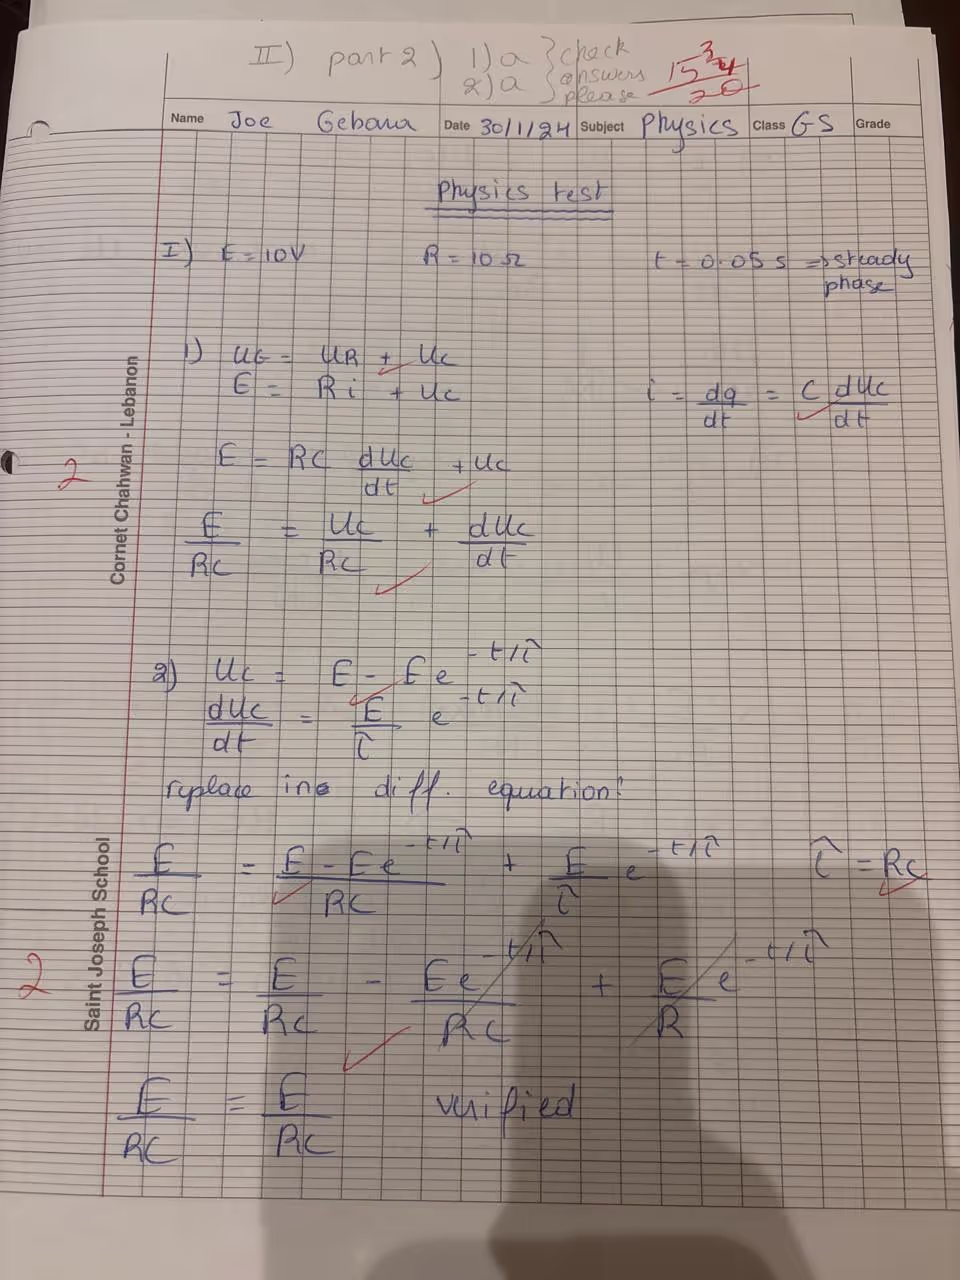 II) part 2) 1) a } check
2) a } answers please
15 3/4
20
Name Joe Gebara Date 30/1/24 Subject Physics Class GS Grade
Physics test
I) E = 10V R = 10 Ω t = 0.05 s => steady phase
1) UG = UR + Uc
E = Ri + Uc i = dq/dt = C dUc/dt
E = RC dUc/dt + Uc
2
E/RC = Uc/RC + dUc/dt
2) Uc = E - E e^-t/τ
dUc/dt = E/τ e^-t/τ
replace in diff. equation:
E/RC = E - E e^-t/τ / RC + E/τ e^-t/τ τ = RC
2
E/RC = E/RC - E e^-t/τ / RC + E/R e^-t/τ
E/RC = E/RC verified
Cornet Chahwan - Lebanon
Saint Joseph School